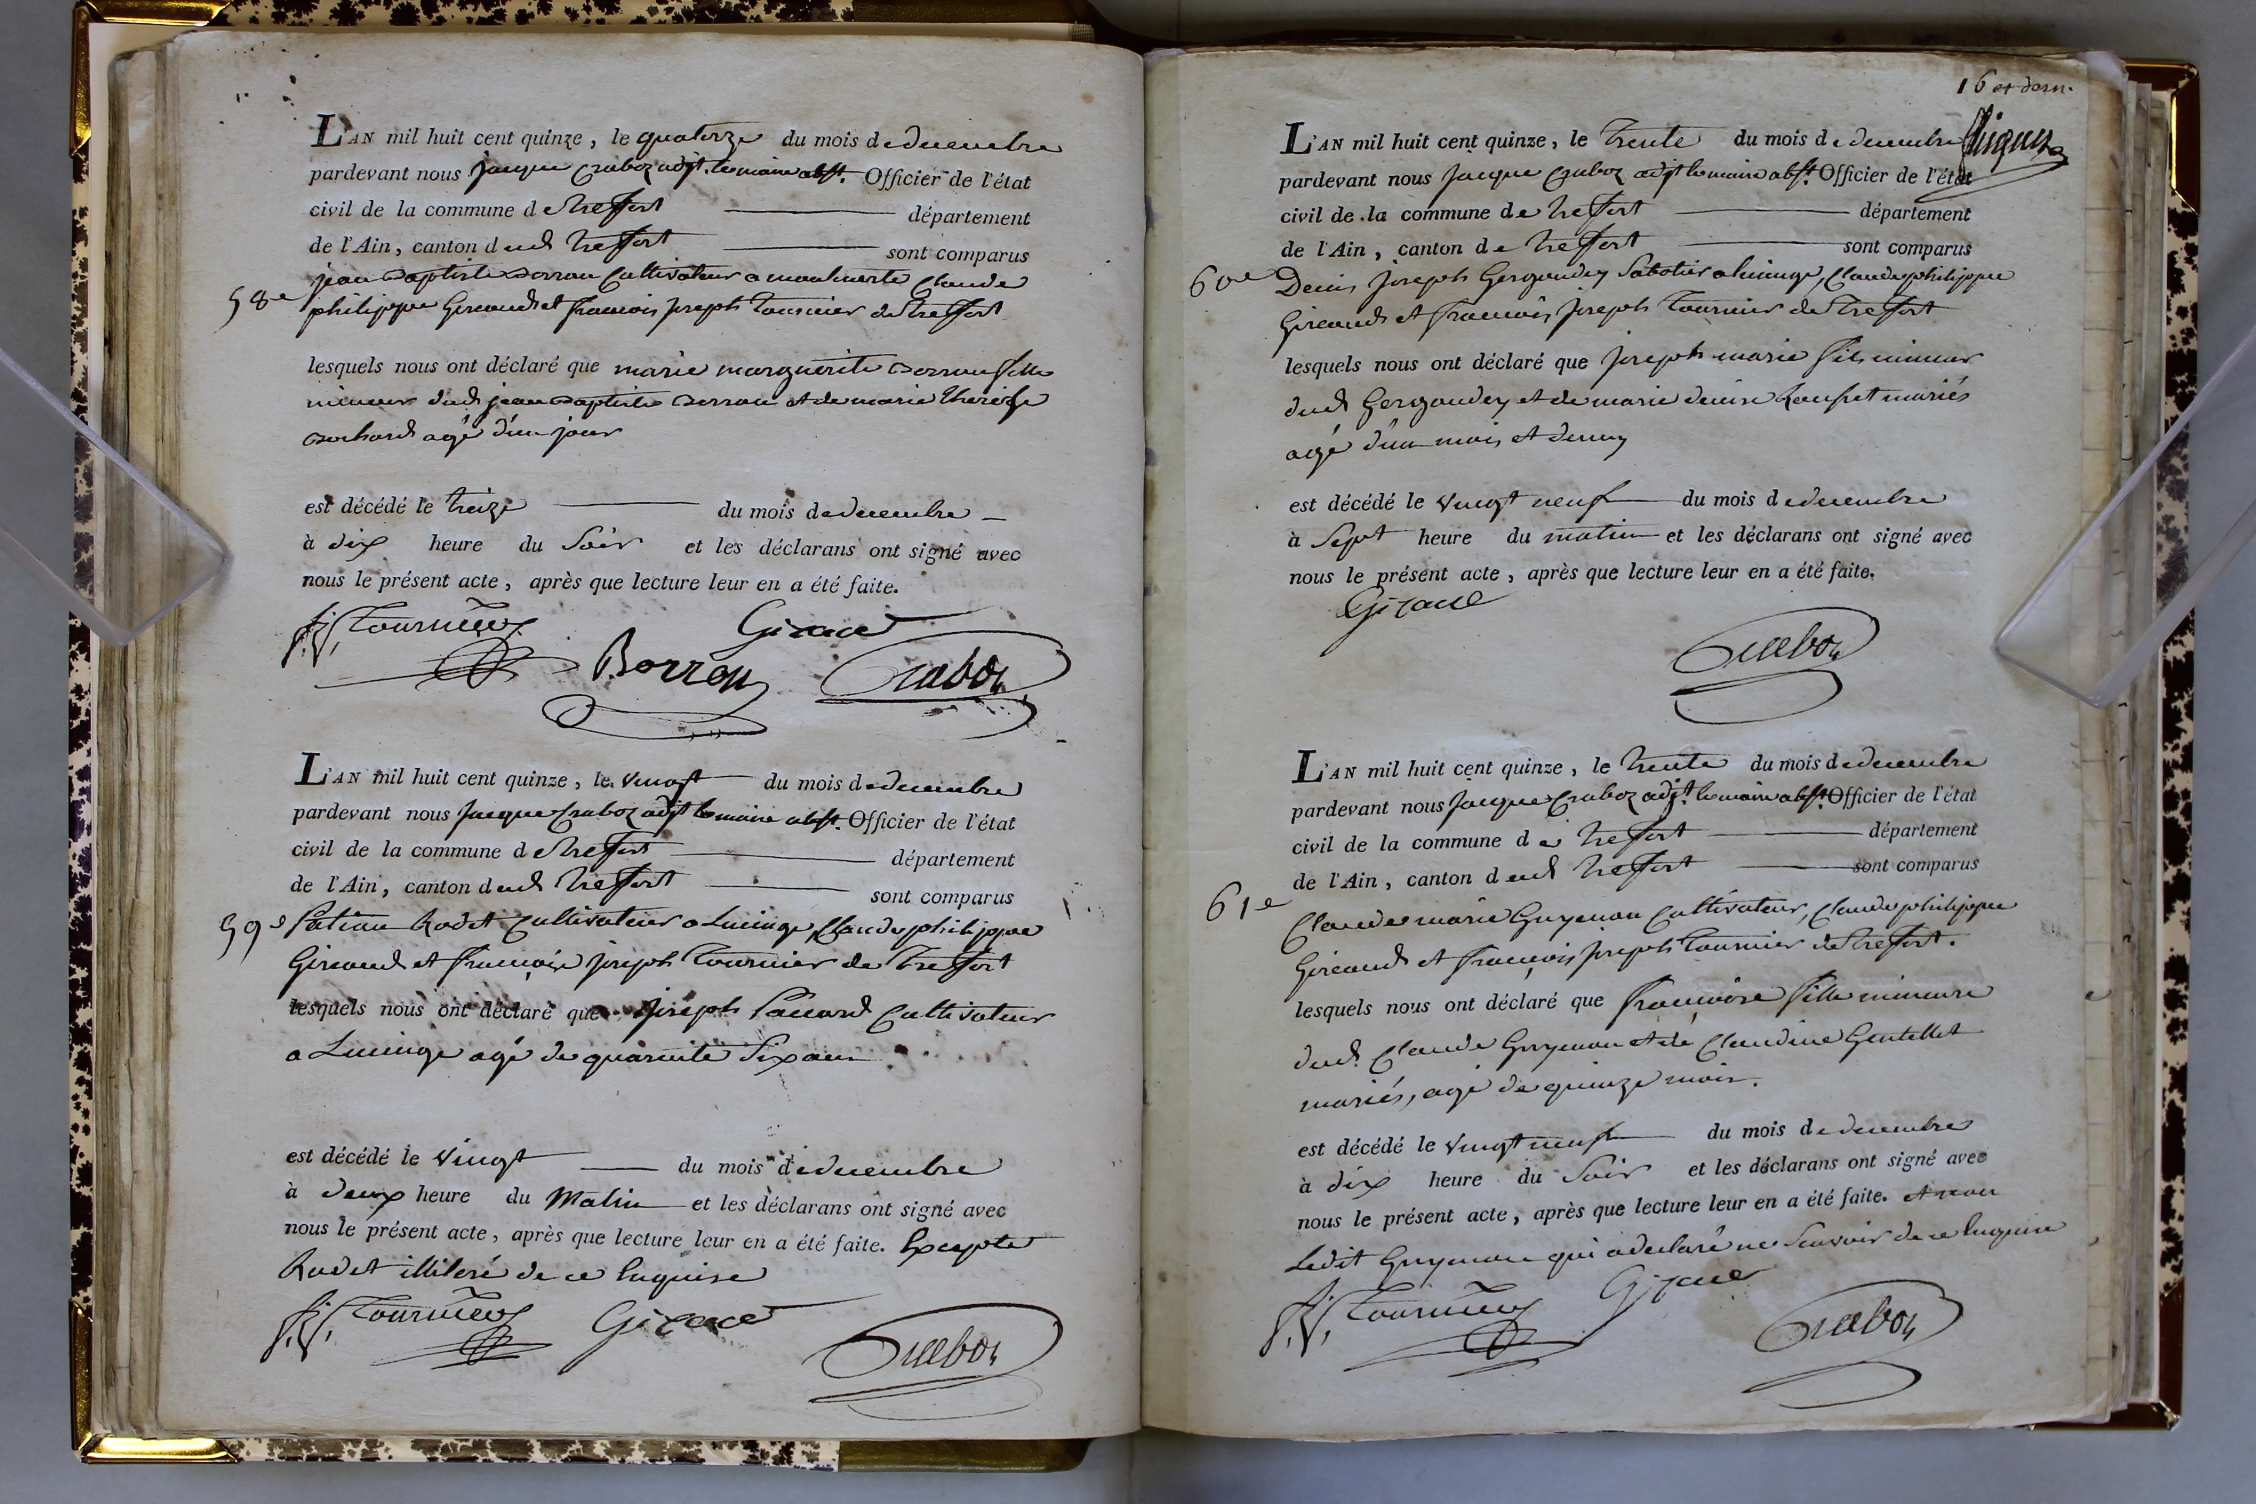 L'AN mil huit cent quinze, le quatorze du mois de decembre
pardevant nous jacque Craboz adjt. le maire abst. Officier de l'état
civil de la commune de treffort département
de l'Ain, canton dud treffort sont comparus
58e
jean Baptiste Borron Cultivateur a montmerte Claude
philippe Gireaud et francois joseph Tournier de treffort
lesquels nous ont déclaré que marie marguerite Borron fille
mineur dud jean Baptiste Borron et de marie therèse
Bochard agé d'un jour
est décédé le treize du mois de decembre
à dix heure du Soir et les déclarans ont signé avec
nous le présent acte, après que lecture leur en a été faite.
f. j. Tournier Giraud
Borron Craboz
L'AN mil huit cent quinze, le vingt du mois de decembre
pardevant nous jacque Craboz adjt le maire abst. Officier de l'état
civil de la commune de treffort département
de l'Ain, canton dud treffort sont comparus
59e
Rodet Cultivateur a Lucinge, Claude philippe
Gireaud et francoise joseph Tournier de Treffort
lesquels nous ont déclaré que joseph Paccard Cultivateur
a Lucinge agé de quarente Six ans
est décédé le vingt du mois de decembre
à deux heure du Matin et les déclarans ont signé avec
nous le présent acte, après que lecture leur en a été faite. Excepte
Rodet illiteré de ce Enquise
f. j. Tournier Giraud
Craboz
16 et dern.
L'AN mil huit cent quinze, le trente du mois de decembre
pardevant nous jacque Craboz adjt le maire abst. Officier de l'état
civil de la commune de treffort département
de l'Ain, canton de treffort sont comparus
60e
Denis joseph Gergondey Sabotier a lucinge, Claude philippe
Gireaud et francois joseph Tournier de treffort
lesquels nous ont déclaré que joseph marie fils mineur
dud Gergondey et de marie denise mariés
agé d'un mois et demy
est décédé le vingt neuf du mois de decembre
à Sept heure du matin et les déclarans ont signé avec
nous le présent acte, après que lecture leur en a été faite.
Giraud
Craboz
L'AN mil huit cent quinze, le trente du mois de decembre
pardevant nous jacque Craboz adjt. le maire abst Officier de l'état
civil de la commune de treffort département
de l'Ain, canton dud treffort sont comparus
61e
Claude marie Guyenon Cultivateur, Claude philippe
Gireaud et francois joseph Tournier de treffort.
lesquels nous ont déclaré que francoise fille mineure
dud. Claude Guyenon et de Claudine Gentellet
mariés, agé de quinze mois.
est décédé le vingt neuf du mois de decembre
à dix heure du Soir et les déclarans ont signé avec
nous le présent acte, après que lecture leur en a été faite. et non
Ledit Guyenon qui a declaré ne Scavoir de ce Enquise
f. j. Tournier Giraud
Craboz